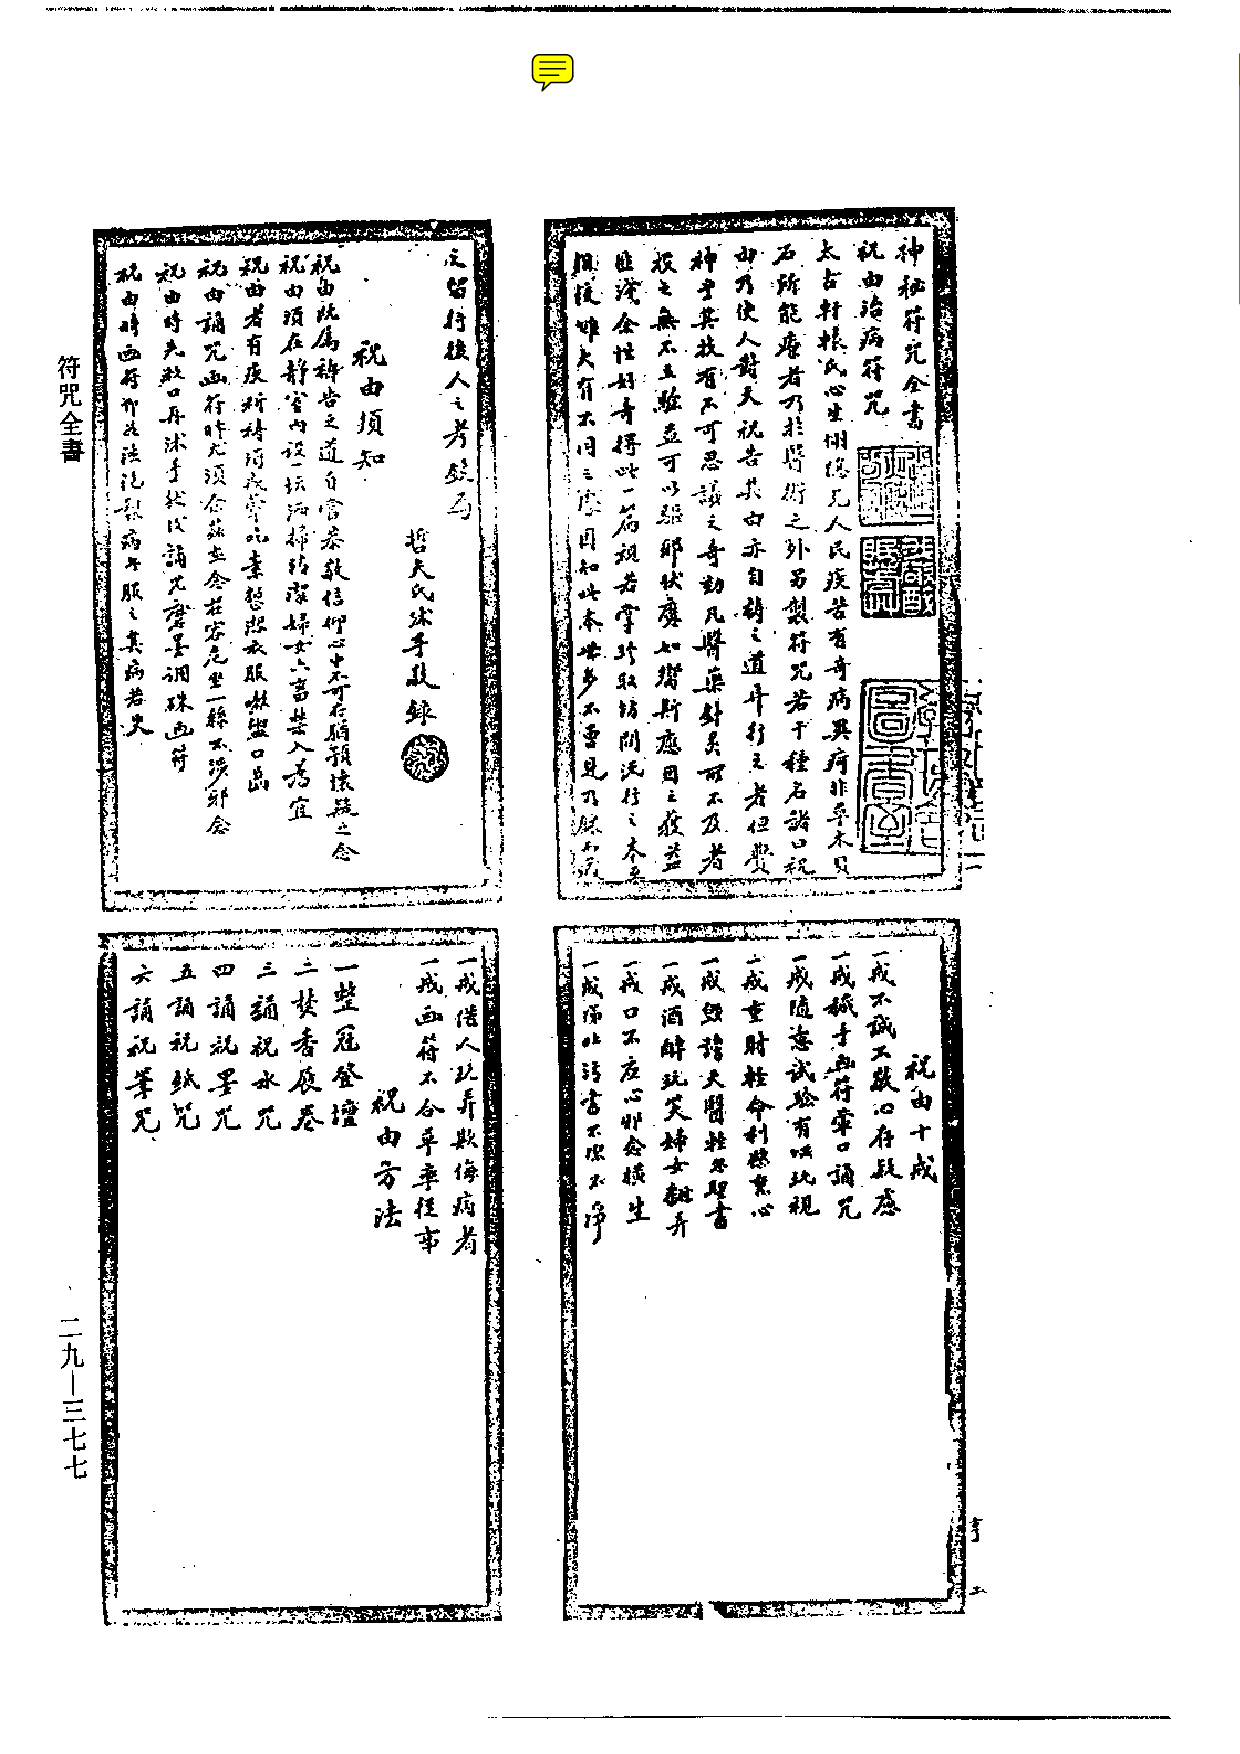 神秘符咒全書
祝由治病符咒
太古軒轅氏心生惻隱見人民疾苦有奇病異疴非草木
石所能療者乃於醫術之外另製符咒若干種名諸曰祝
由乃使人對天祝告其由亦自禱之道耳行之者但費
神其技有不可思議之奇効凡醫藥針灸所不及者
投之無不立驗並可以驅邪伏魔如響斯應因之獲益
匪淺余性好奇得此一篇視若掌珍
不同之處因知此本世多不
之留待後人之考證焉
哲夫氏沐手敬錄
祝由須知
祝由既屬禱告之道自當恭敬信仰心中不可存懷疑之念
祝由須在靜室內設一壇洒掃清潔婦女六畜禁入為宜
祝由者有疾祈禱須戒葷吃素整潔衣服漱盥口齒
祝由誦咒画符時尤須念茲在茲危坐一絲不涉邪念
祝由時先漱口再沐手然後誦咒磨墨調硃画符
祝由時画符病者服之其病若失
祝由十戒
一戒不誠不敬心存疑惑
一戒穢手画符葷口誦咒
一戒隨意試驗有時玩視
一戒重財輕命利慾熏心
一戒毀謗天醫輕慢聖書
一戒酒醉玩笑婦女翻弄
一戒口不應心邪念橫生
一戒不潔不淨
一戒借人玩弄欺侮病者
一戒画符不合草率從事
祝由方法
一整冠登壇
二焚香展卷
三誦祝水咒
四誦祝墨咒
五誦祝紙咒
六誦祝筆咒
符咒全書
二九—三七七